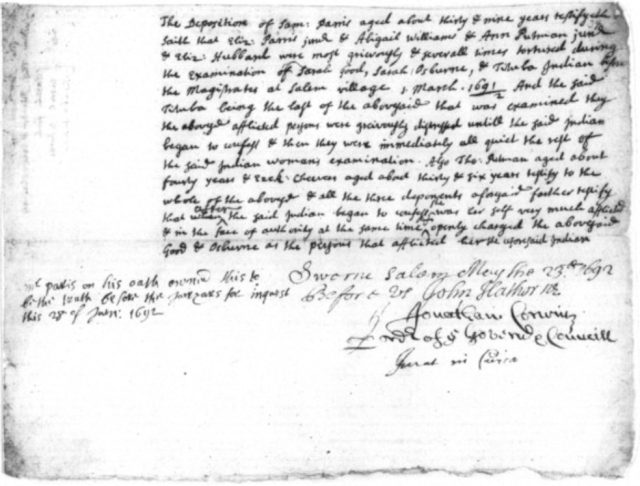 The Deposition of Sam: Parris aged about thirty & nine years testifyeth &
saith that Eliz: Parris junr & Abigail Williams & Ann Putman junr
& Eliz: Hubbard were most grievously & severall times tortured during
the Examination of Sarah Good, Sarah Osburne, & Tituba Indian before
the Magistrates at Salem village 1. March. 1691/2 And the said
Tituba being the last of the abovesaid that was examined they
the aboves'd afflicted persons were grievously distressed untill the said Indian
began to confess & then they were immediately all quiet the rest of
the said Indian womans examination. Also Tho: Putman aged about
fourty years & Ezek: Cheever aged about thirty & six years testify to the
whole of the aboves'd & all the three deponents aforsaid farther testify
that after the said Indian began to confess she was her self very much afflicted
& in the face of authority at the same time openly charged the abovesaid
Good & Osburne as the persons that afflicted her the aforesaid Indian
Sworne Salem May the 23rd 1692
Before Us John Hathorne
Jonathan Corwin
ordr of ye Govenr & Councill
Jurat in Curia
paris on his oath owned this to
be the truth before the Juryars for inquest
this 28 of Jun: 1692